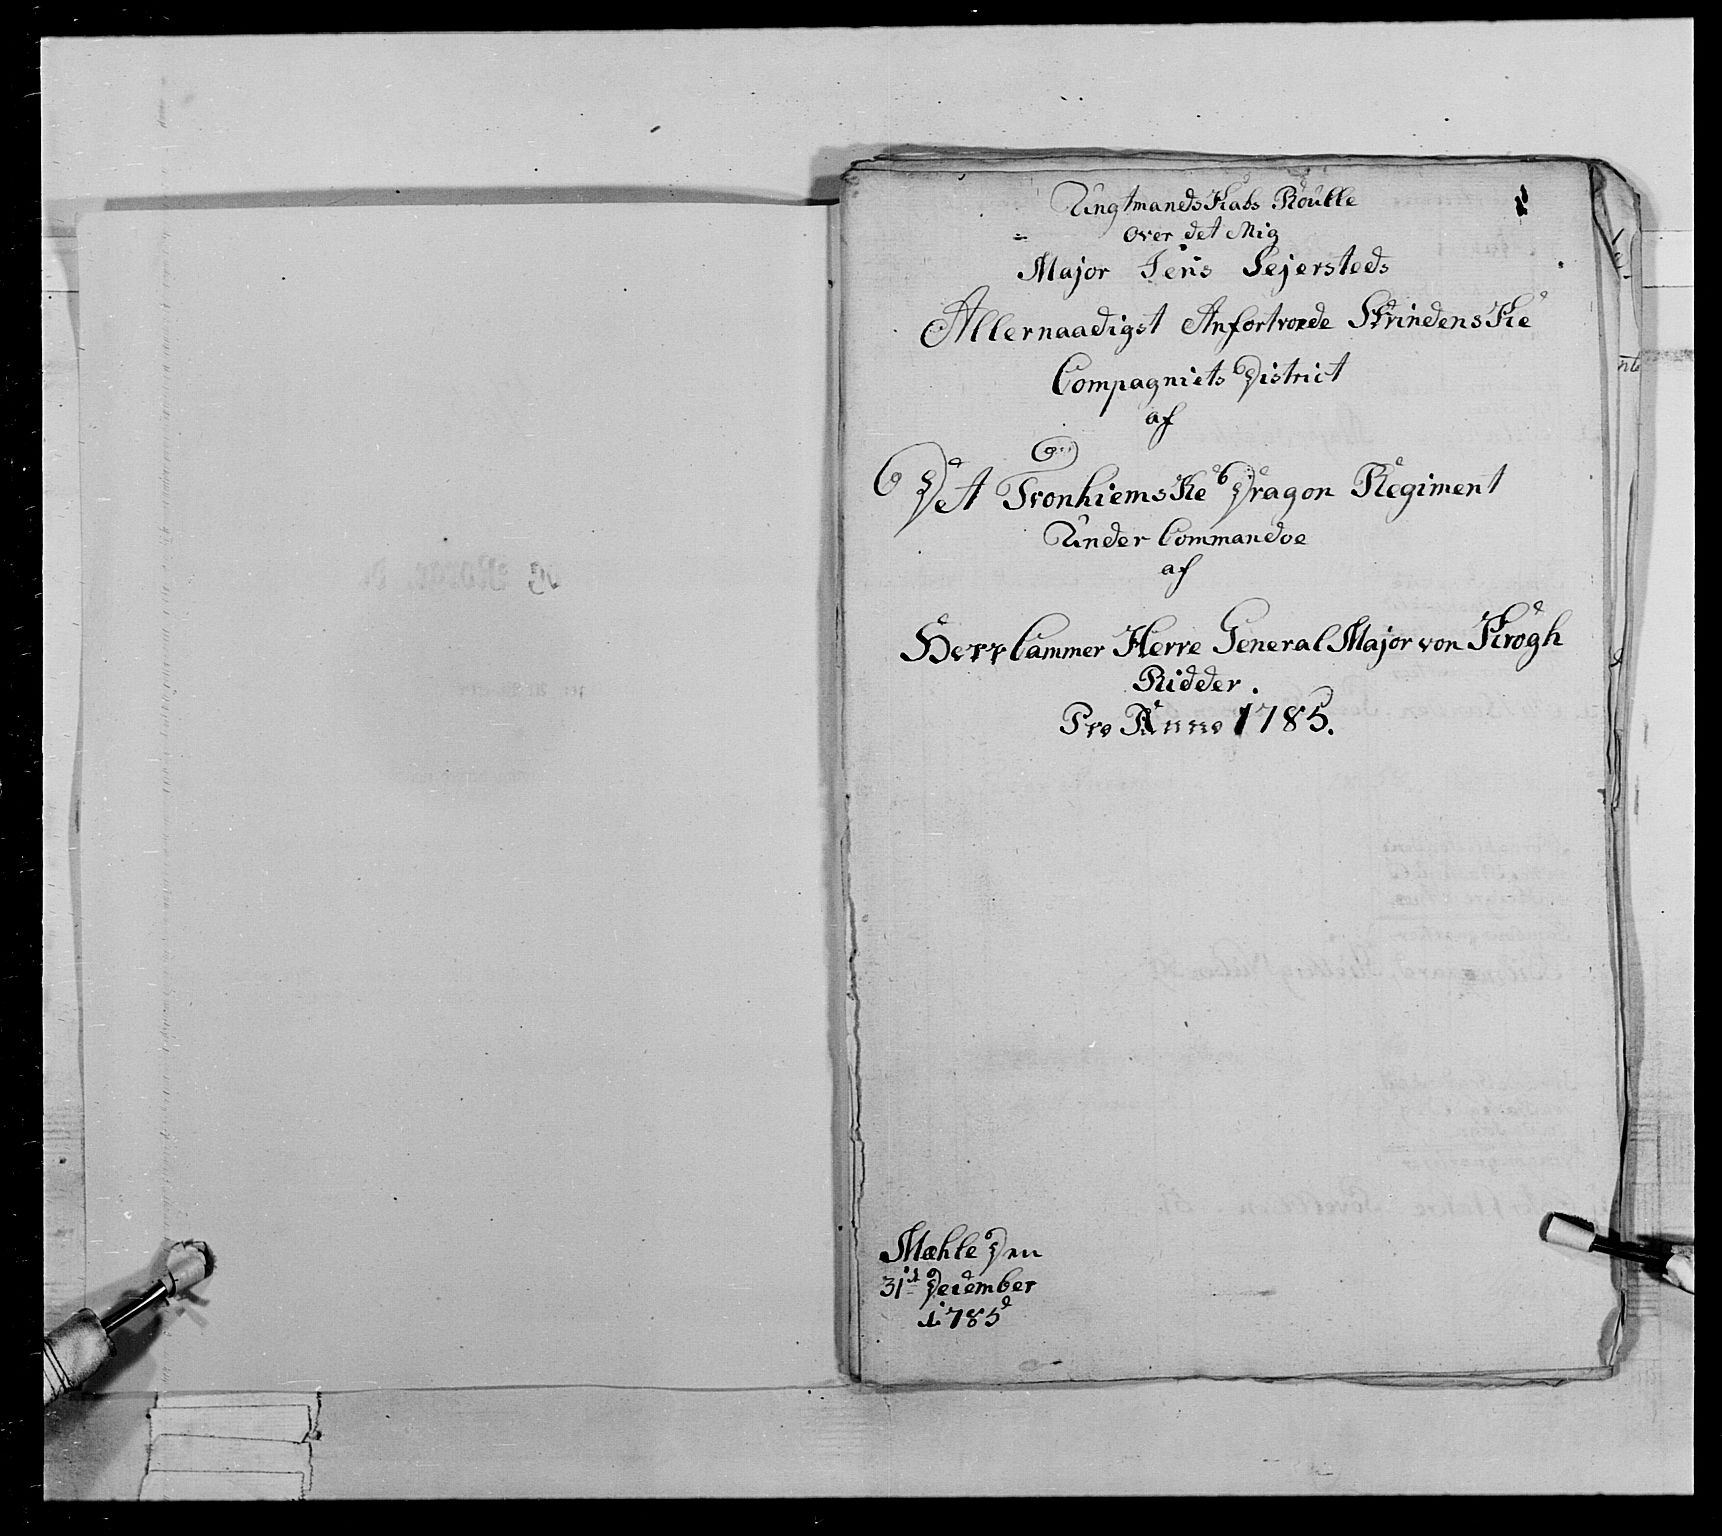 Ungtmandskabs Roulle
over det Mig
Major Jens Sejersteds
Allernaadigst Anfortroede Strindenske
Compagniets District
af
Det Tronhiemske Dragon Regiment
Under Commandoe
af
Herr Cammer Herre General Major von Krogh
Ridder.
Pro Anno 1785.
Mæhle Den
31te December
1785